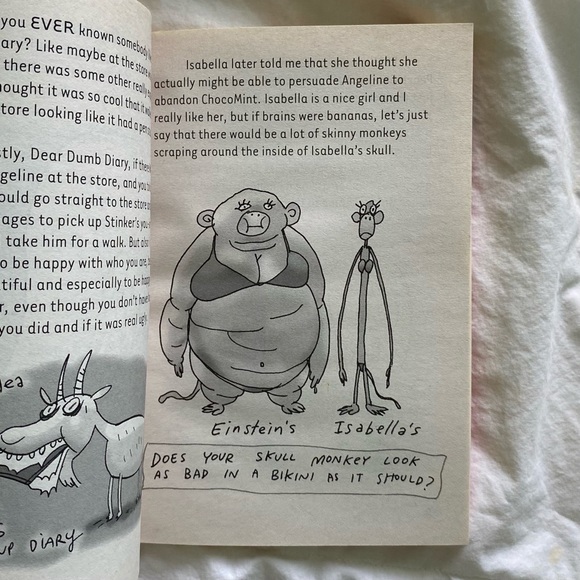 you EVER known somebody
ary? Like maybe at the store
there was some other really
ought it was so cool that it
tore looking like it had a
stly, Dear Dumb Diary, if
geline at the store, and you
ould go straight to the store
ages to pick up Stinker's
take him for a walk. But
o be happy with who you are,
tiful and especially to be
r, even though you don't have
you did and if it was real ugly
dea
UP DIARY
Isabella later told me that she thought she
actually might be able to persuade Angeline to
abandon ChocoMint. Isabella is a nice girl and I
really like her, but if brains were bananas, let's just
say that there would be a lot of skinny monkeys
scraping around the inside of Isabella's skull.
Einstein's Isabella's
DOES YOUR SKULL MONKEY LOOK
AS BAD IN A BIKINI AS IT SHOULD?